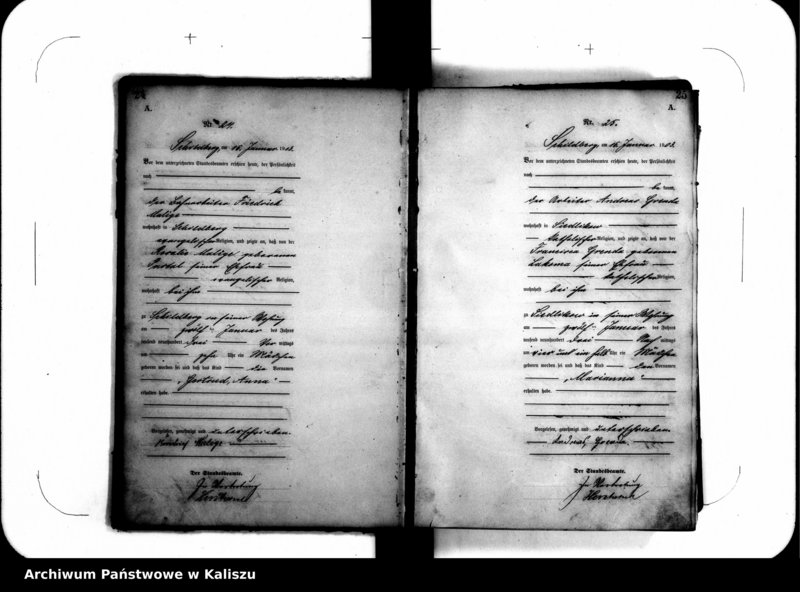 24
A.
Nr. 24.
Schildberg, am 16. Januar 1903.
Vor dem unterzeichneten Standesbeamten erschien heute, der Persönlichkeit
nach
be kannt,
der
Malige
wohnhaft in Schildberg
evangelischer Religion, und zeigte an, daß von der
Malige geborenen
seiner Ehefrau
evangelischer Religion,
wohnhaft bei ihm
zu Schildberg in seiner Wohnung
am zwölften Januar des Jahres
tausend neunhundert drei Vor mittags
um zehn Uhr ein Mädchen
geboren worden sei und daß das Kind die Vornamen
„Gertrud, Anna“
erhalten habe.
Vorgelesen, genehmigt und unterschrieben.
Malige
Der Standesbeamte.
In Vertretung
25
A.
Nr. 25.
Schildberg, am 16. Januar 1903.
Vor dem unterzeichneten Standesbeamten erschien heute, der Persönlichkeit
nach
be kannt,
der Arbeiter Andreas Grenda
wohnhaft in Siedlikow
katholischer Religion, und zeigte an, daß von der
Francisca Grenda geborenen
seiner Ehefrau
katholischer Religion,
wohnhaft bei ihm
zu Siedlikow in seiner Wohnung
am zwölften Januar des Jahres
tausend neunhundert drei Nach mittags
um vier und ein halb Uhr ein Mädchen
geboren worden sei und daß das Kind den Vornamen
„Marianna“
erhalten habe.
Vorgelesen, genehmigt und unterschrieben.
Andreas Grenda
Der Standesbeamte.
In Vertretung
Archiwum Państwowe w Kaliszu